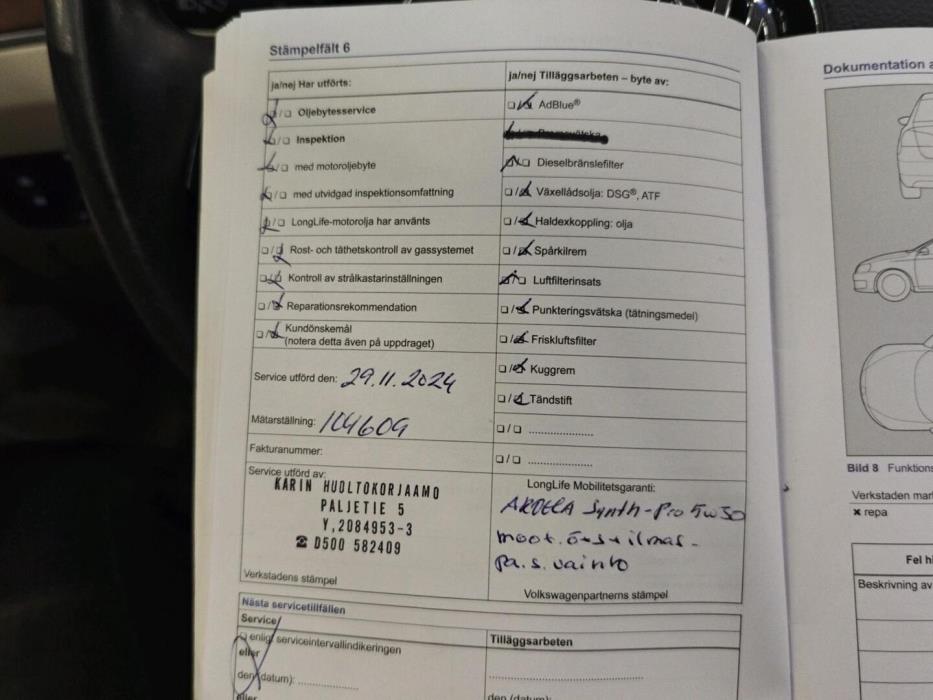 Stämpelfält 6
ja/nej Har utförts:
☐/☐ Oljebytesservice
☐/☐ Inspektion
☐/☐ med motoroljebyte
☐/☐ med utvidgad inspektionsomfattning
☐/☐ LongLife-motorolja har använts
☐/☐ Rost- och täthetskontroll av gassystemet
☐/☐ Kontroll av strålkastarinställningen
☐/☐ Reparationsrekommendation
☐/☐ Kundönskemål
(notera detta även på uppdraget)
Service utförd den: 29.11.2024
Mätarställning: 104609
Fakturanummer:
Service utförd av:
KARIN HUOLTOKORJAAMO
PALJETIE 5
Y,2084953-3
☎ 0500 582409
Verkstadens stämpel
ja/nej Tilläggsarbeten – byte av:
☐/☐ AdBlue®
☐/☐ Dieselbränslefilter
☐/☐ Växellådsolja: DSG®, ATF
☐/☐ Haldexkoppling: olja
☐/☐ Spårkilrem
☐/☐ Luftfilterinsats
☐/☐ Punkteringsvätska (tätningsmedel)
☐/☐ Friskluftsfilter
☐/☐ Kuggrem
☐/☐ Tändstift
☐/☐ ......................
☐/☐ ......................
LongLife Mobilitetsgaranti:
Synth-Pro 5w30
moot.ö+s+ilmas-
pa.s.vaihto
Volkswagenpartnerns stämpel
Nästa servicetillfällen
Service
☐ enligt serviceintervallindikeringen
eller
den (datum): ....................
eller
Tilläggsarbeten
den (datum):
Dokumentation a
Bild 8 Funktions
Verkstaden mar
× repa
Fel hi
Beskrivning av